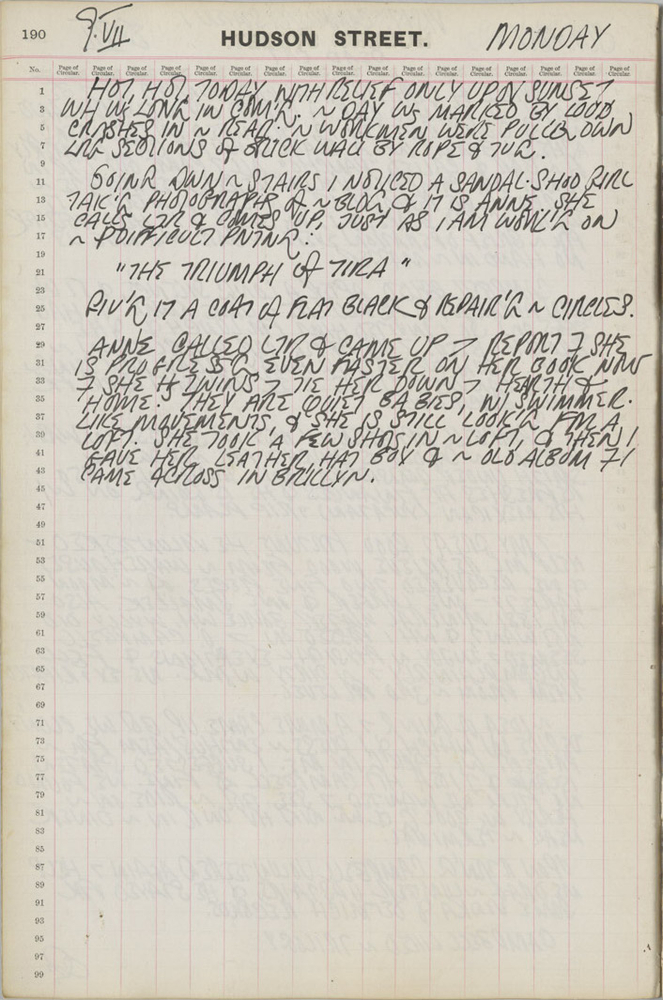 190
9.VII
HUDSON STREET.
MONDAY
No.
Page of Circular. Page of Circular. Page of Circular. Page of Circular. Page of Circular. Page of Circular. Page of Circular. Page of Circular. Page of Circular. Page of Circular. Page of Circular. Page of Circular. Page of Circular. Page of Circular. Page of Circular. Page of Circular. Page of Circular.
1 HOT, HOT, TODAY, WITH RELIEF ONLY UPON SUNSET
3 WH WS LONG IN COM'G. ~ DAY WS MARKED BY LOUD
5 CRASHES IN ~ REAR: ~ WORKMEN WERE PULL'G DWN
7 LRG SECTIONS of BRICK WALL BY ROPE & TUG.
9
11 GOING DWN ~ STAIRS I NOTICED A SANDAL-SHOD GIRL
13 TAK'G PHOTOGRAPHS of ~ BLDG & IT IS ANNE. SHE
15 CALLS LTR & COMES UP, JUST AS I AM WORK'G ON
17 ~ DIFFICULT PNTNG:
19
21 "THE TRIUMPH of TIRA"
23
25 GIV'G IT A COAT of FLAT BLACK & REPAIR'G ~ CIRCLES.
27
29 ANNE CALLED LTR & CAME UP REPORT SHE
31 IS PROGRESS'G EVEN FASTER ON HER BOOK NOW
33 SHE H TWINS TIE HER DOWN HEARTH &
35 HOME. THEY ARE QUIET BABIES, W/ SWIMMER-
37 LIKE MOVEMENTS, & SHE IS STILL LOOK'G FOR A
39 LOFT. SHE TOOK A FEW SHOTS IN ~ LOFT, & THEN I
41 GAVE HER LEATHER HAT BOX & ~ OLD ALBUM I
43 CAME ACROSS IN BRKLYN.
45
47
49
51
53
55
57
59
61
63
65
67
69
71
73
75
77
79
81
83
85
87
89
91
93
95
97
99